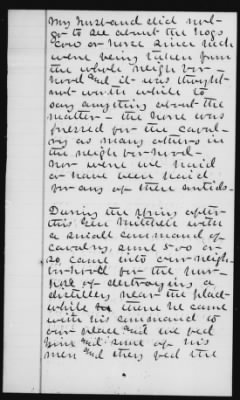 My husband did not
go to see about the hogs
cow or horse since such
were being taken from
the whole neigh bor-
hood and it was thought
not worth while to
say anything about the
matter - the horse was
pressed for the caval-
ry as many others in
the neigh bor-hood -
nor were we paid
or have been paid
for any of these articles.
During the spring after
this Gen Mitchell with
a small command of
cavalry, some 500 or
so, came into our neigh-
bor-hood for the pur-
pose of destroying a
distillery near the place
while there he came
with his command to
our place and we fed
him and some of his
men and they fed the